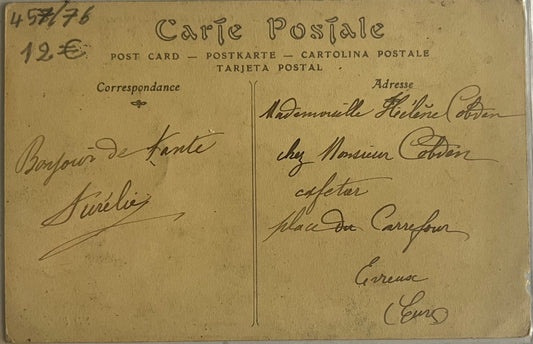 457/76
12 €
Carte Postale
POST CARD — POSTKARTE — CARTOLINA POSTALE
TARJETA POSTAL
Correspondance
Bonjour de Tante
Aurélie
Adresse
Mademoiselle Hélène Cobden
chez Monsieur Cobden
cafetier
place du Carrefour
Evreux
(Eure)